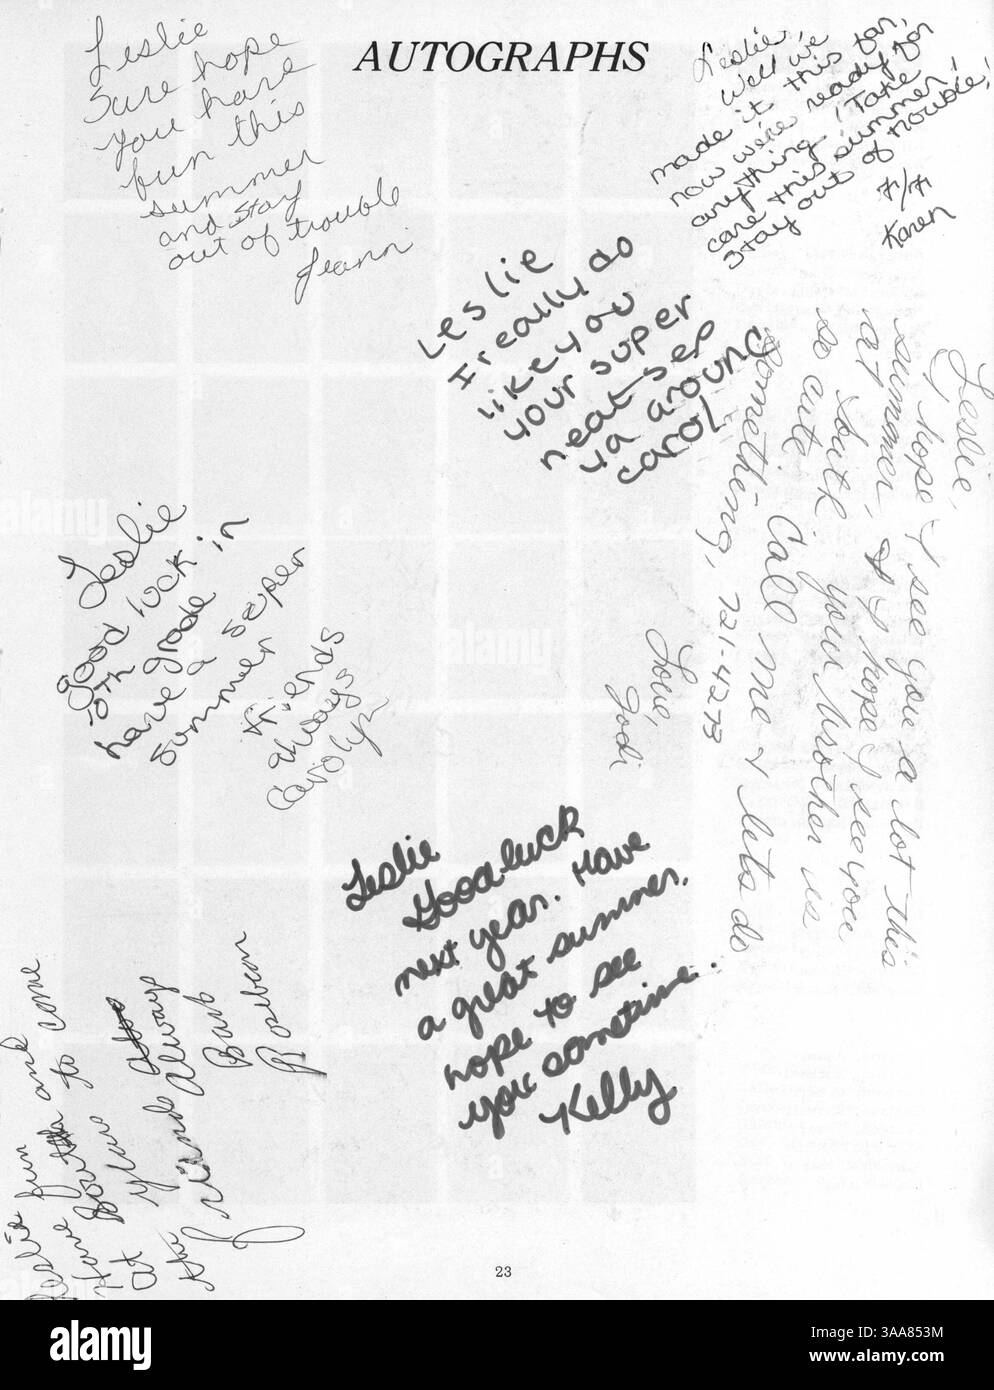 AUTOGRAPHS
Leslie
Sure hope
you have
fun this
summer
and stay
out of trouble
Jeann
Leslie,
Well we
made it this far,
now we're ready for
anything! Take
care this summer,
stay out of trouble!
Karen
Leslie
I really do
like you
your super
neat sep
ya around
carol
Leslie,
I hope I see you a lot this
summer, & I hope I see you
at South your brother is
so cute. Call me & lets do
something, 721-4273
Love,
Jodi
Leslie
good luck in
8th grade
have a super
summer
friends
always
Carolyn
Leslie
Good luck
next year. Have
a great summer.
hope to see
you sometime.
Kelly
Leslie
Have fun and
to come
at
Friend Always
Barb
23
alamy
alamy
a
alamy
Image ID: 3AA853M
www.alamy.com